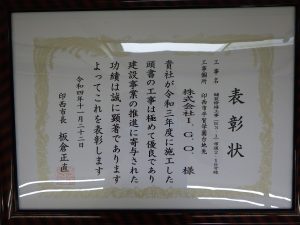 表彰状
工事名
工事箇所 印西市平賀学園台地先
株式会社I.G.O. 様
貴社が令和三年度に施工した
頭書の工事は極めて優良であり
建設事業の推進に寄与された
功績は誠に顕著であります
よってこれを表彰します
令和四年十一月二十二日
印西市長 板倉正直